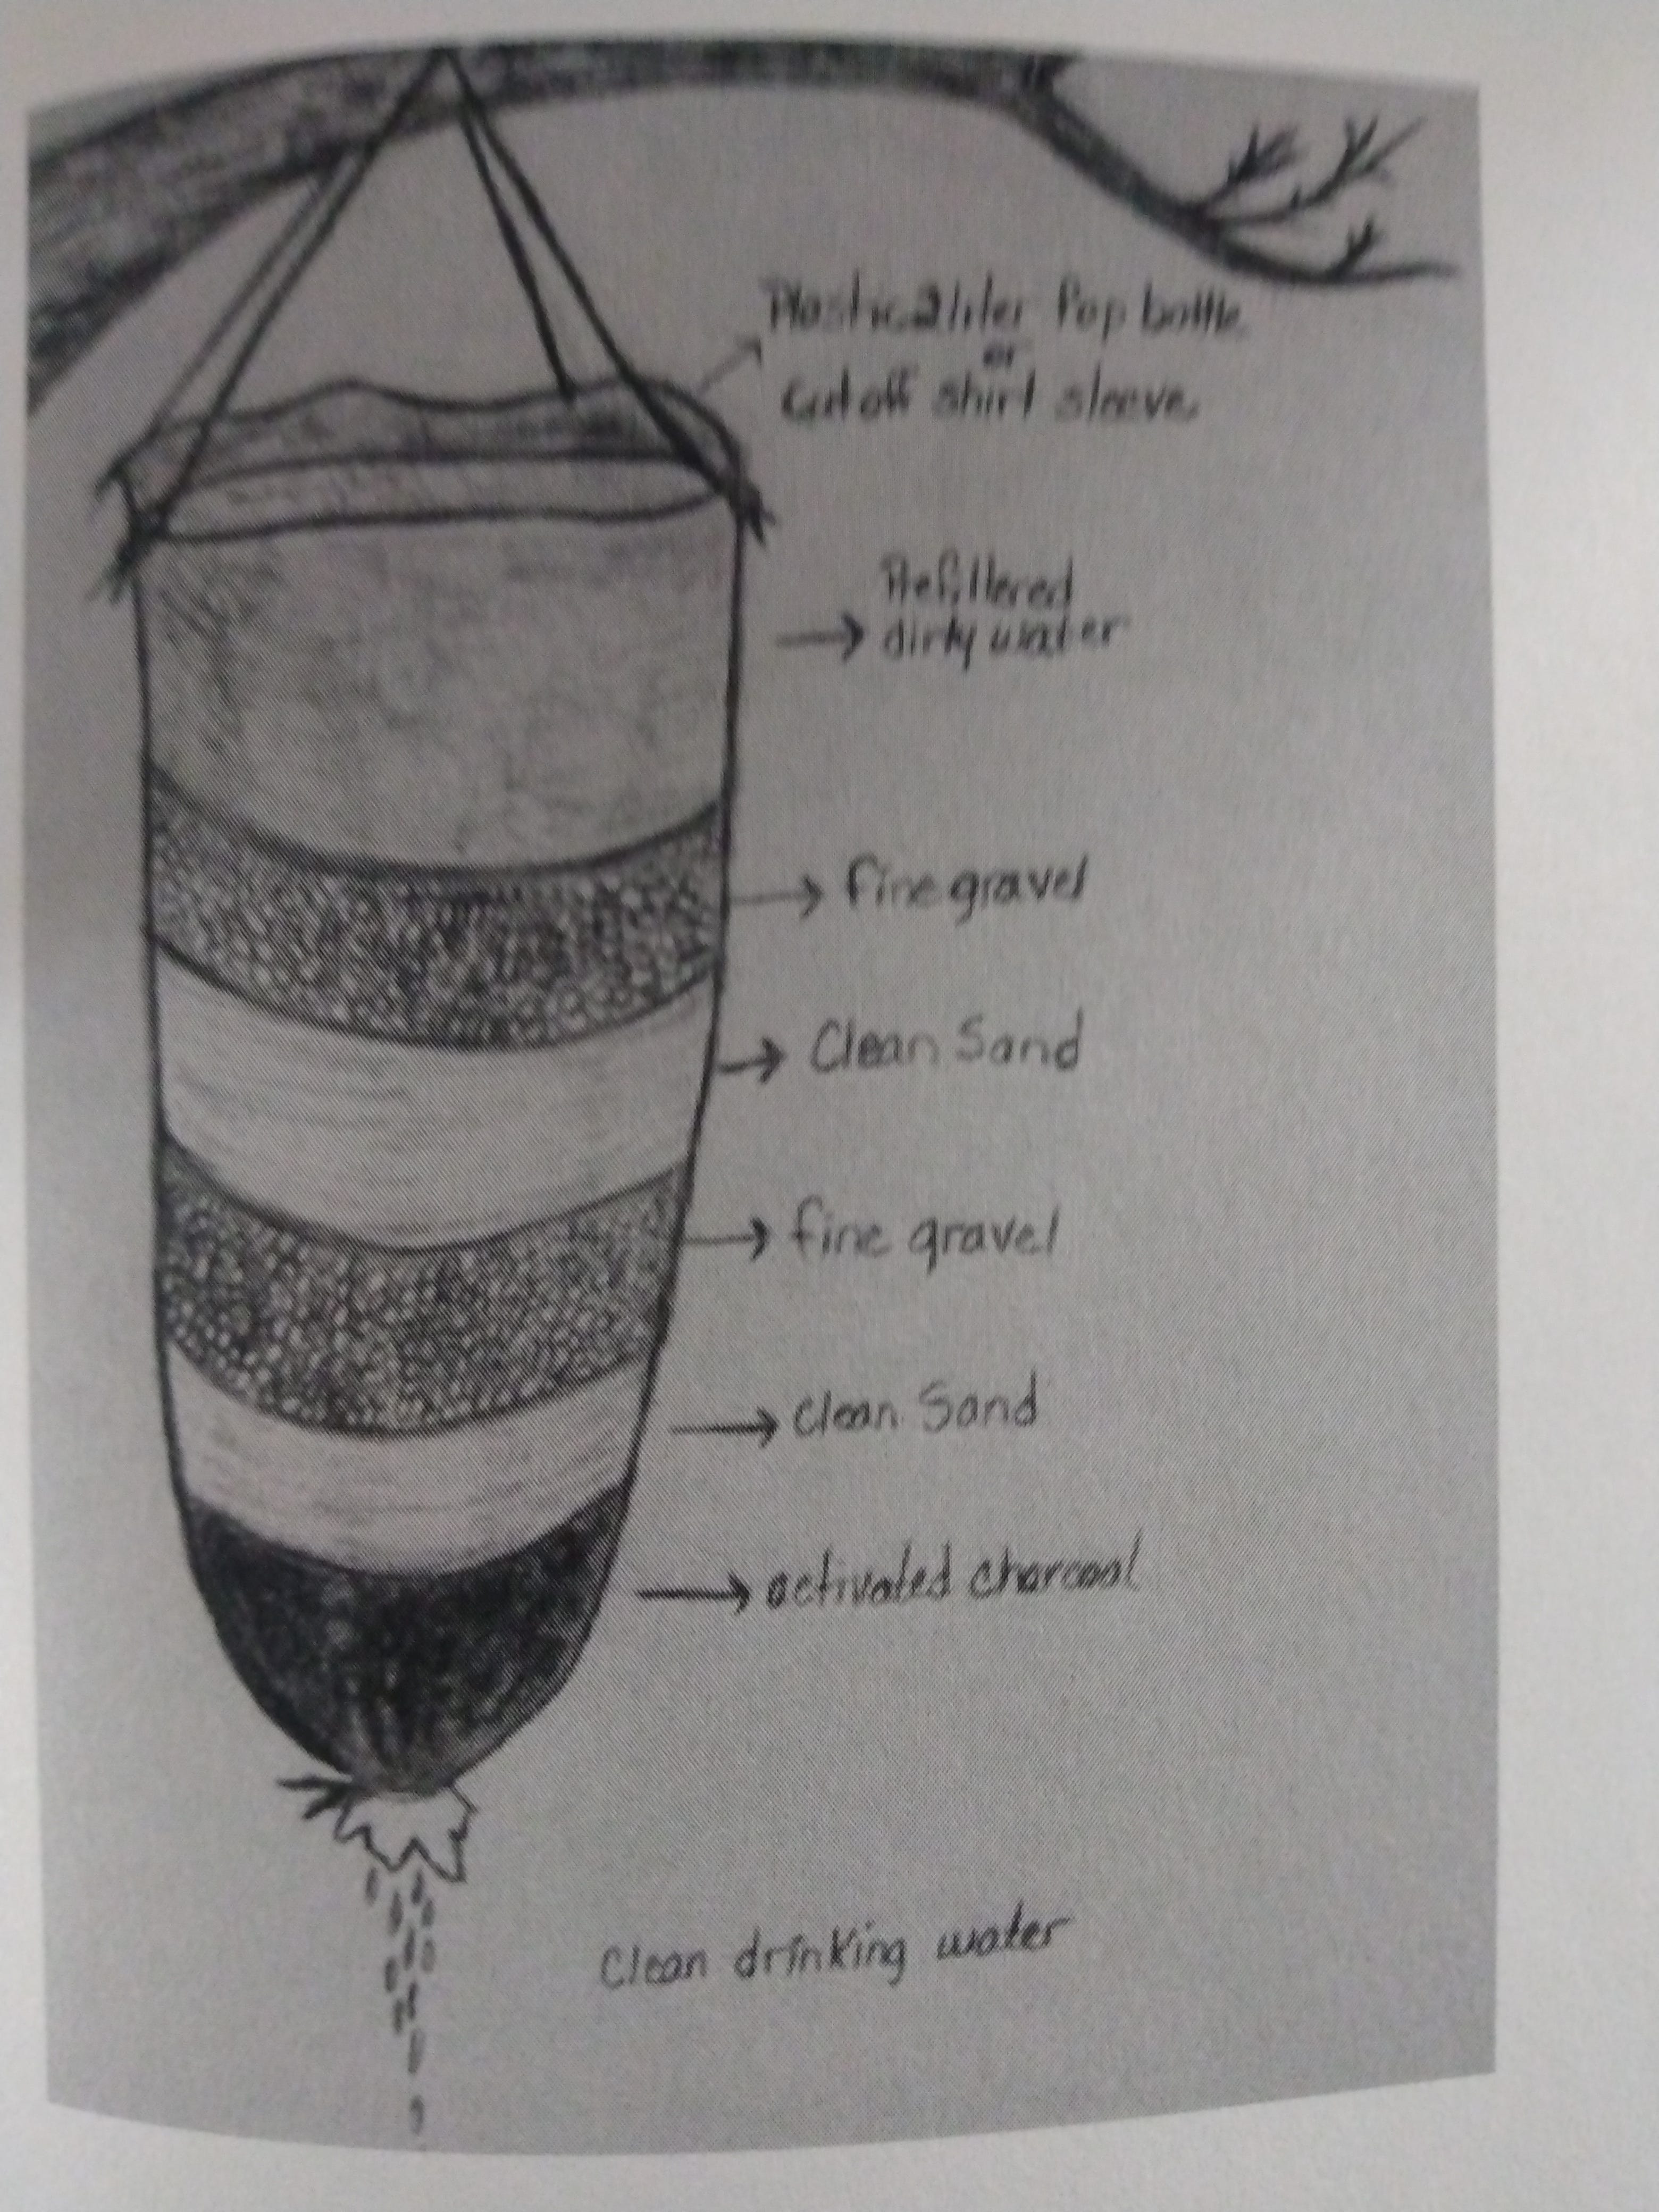 Plastic 2 liter Pop bottle
or
Cut off shirt sleeve
Prefiltered
dirty water
fine gravel
Clean Sand
fine gravel
clean Sand
activated charcoal
Clean drinking water